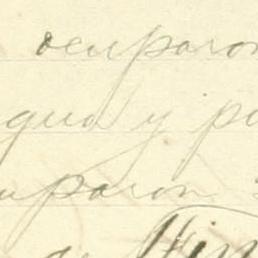 ocuparon
gua y pa
uparon
de Tin